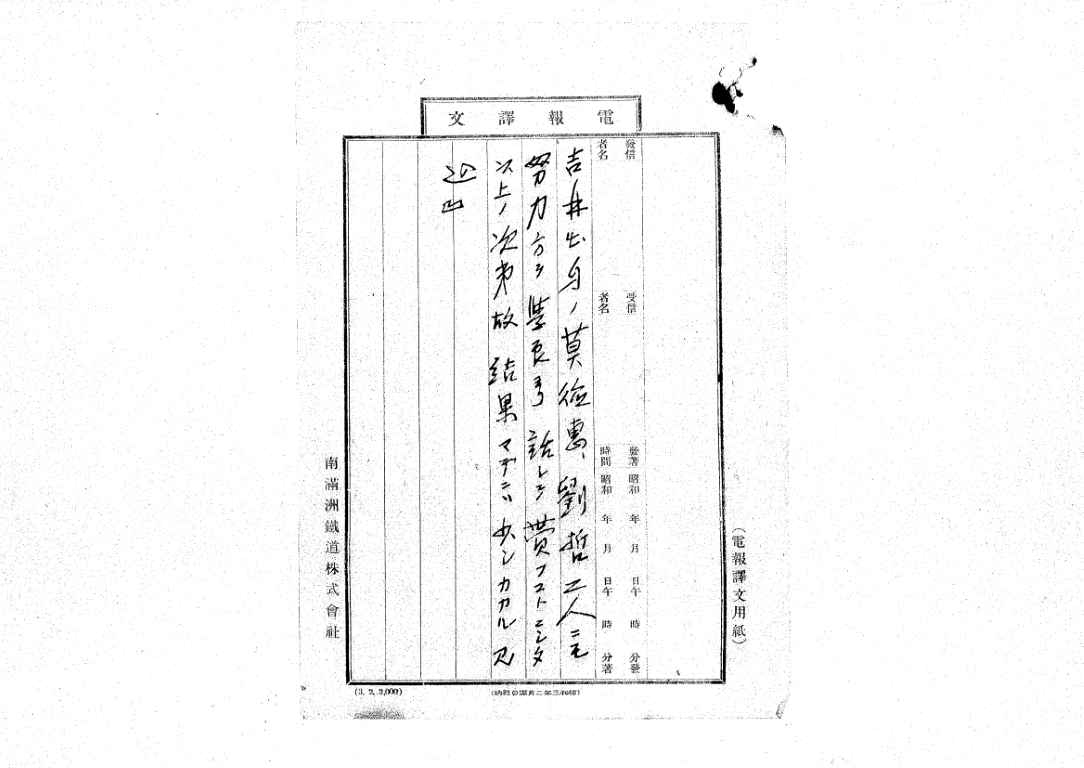 電報譯文
(電報譯文用紙)
發信者名
受信者名
發著時間
昭和 年 月 日午 時 分發
昭和 年 月 日午 時 分著
吉林出身ノ莫徳惠、劉哲二人ニモ
努力方ヲ學良ヨリ話シテ貰フコトニシタ
以上ノ次第故 結果マデニハ少シカカル見
込
南滿洲鐵道株式會社
(3. 2. 2,000)